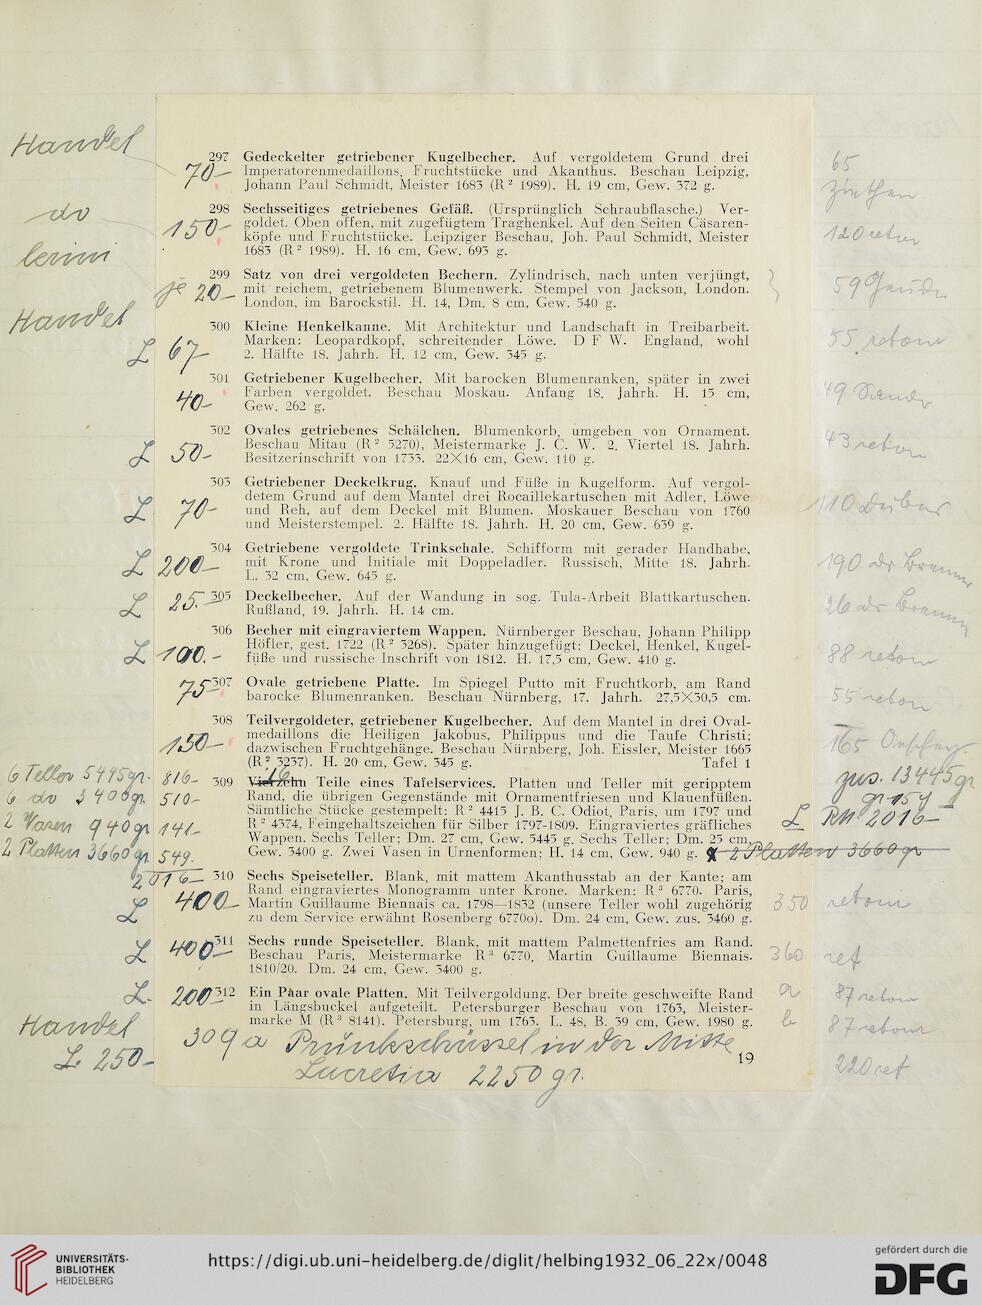 Handel
297 Gedeckelter getriebener Kugelbecher. Auf vergoldetem Grund drei
70- Imperatorenmedaillons, Fruchtstücke und Akanthus. Beschau Leipzig,
Johann Paul Schmidt, Meister 1683 (R² 1989). H. 19 cm, Gew. 372 g.
65
do
298 Sechsseitiges getriebenes Gefäß. (Ursprünglich Schraubflasche.) Ver-
150- goldet. Oben offen, mit zugefügtem Traghenkel. Auf den Seiten Cäsaren-
köpfe und Fruchtstücke. Leipziger Beschau, Joh. Paul Schmidt, Meister
1683 (R² 1989). H. 16 cm, Gew. 693 g.
120 retour
299 Satz von drei vergoldeten Bechern. Zylindrisch, nach unten verjüngt,
je 20- mit reichem, getriebenem Blumenwerk. Stempel von Jackson, London.
London, im Barockstil. H. 14, Dm. 8 cm, Gew. 540 g.
59
Handel
300 Kleine Henkelkanne. Mit Architektur und Landschaft in Treibarbeit.
L 67- Marken: Leopardkopf, schreitender Löwe. D F W. England, wohl
2. Hälfte 18. Jahrh. H. 12 cm, Gew. 345 g.
55 retour
301 Getriebener Kugelbecher. Mit barocken Blumenranken, später in zwei
40- Farben vergoldet. Beschau Moskau. Anfang 18. Jahrh. H. 15 cm,
Gew. 262 g.
49
302 Ovales getriebenes Schälchen. Blumenkorb, umgeben von Ornament.
L 50- Beschau Mitau (R² 5270), Meistermarke J. C. W. 2. Viertel 18. Jahrh.
Besitzerinschrift von 1733. 22X16 cm, Gew. 110 g.
43 retour
303 Getriebener Deckelkrug. Knauf und Füße in Kugelform. Auf vergol-
L 70- detem Grund auf dem Mantel drei Rocaillekartuschen mit Adler, Löwe
und Reh, auf dem Deckel mit Blumen. Moskauer Beschau von 1760
und Meisterstempel. 2. Hälfte 18. Jahrh. H. 20 cm, Gew. 639 g.
110
304 Getriebene vergoldete Trinkschale. Schifform mit gerader Handhabe,
L 200- mit Krone und Initiale mit Doppeladler. Russisch, Mitte 18. Jahrh.
L. 32 cm, Gew. 645 g.
190 dr
305 Deckelbecher. Auf der Wandung in sog. Tula-Arbeit Blattkartuschen.
L 25.- Rußland, 19. Jahrh. H. 14 cm.
26 dr
306 Becher mit eingraviertem Wappen. Nürnberger Beschau, Johann Philipp
L 100.- Höfler, gest. 1722 (R² 3268). Später hinzugefügt: Deckel, Henkel, Kugel-
füße und russische Inschrift von 1812. H. 17,5 cm, Gew. 410 g.
88 retour
75- 307 Ovale getriebene Platte. Im Spiegel Putto mit Fruchtkorb, am Rand
barocke Blumenranken. Beschau Nürnberg, 17. Jahrh. 27,5X30,5 cm.
55 retour
308 Teilvergoldeter, getriebener Kugelbecher. Auf dem Mantel in drei Oval-
150- medaillons die Heiligen Jakobus, Philippus und die Taufe Christi;
dazwischen Fruchtgehänge. Beschau Nürnberg, Joh. Eissler, Meister 1665
(R² 3237). H. 20 cm, Gew. 345 g. Tafel 1
165
6 Teller 5445 gr. 816-
6 do 3400 gr. 510-
2 Vasen 940 gr 141-
2 Platten 3660 gr. 549.
2016-
309 Vierzehn Teile eines Tafelservices. Platten und Teller mit geripptem
Rand, die übrigen Gegenstände mit Ornamentfriesen und Klauenfüßen.
Sämtliche Stücke gestempelt: R² 4415 J. B. C. Odiot, Paris, um 1797 und
R² 4374, Feingehaltszeichen für Silber 1797-1809. Eingraviertes gräfliches
Wappen. Sechs Teller; Dm. 27 cm, Gew. 5445 g. Sechs Teller; Dm. 25 cm,
Gew. 3400 g. Zwei Vasen in Urnenformen; H. 14 cm, Gew. 940 g. 2 Platten 3660 gr
zus. 13445 gr
gr 15
L RM 2016-
310 Sechs Speiseteller. Blank, mit mattem Akanthusstab an der Kante; am
L 400- Rand eingraviertes Monogramm unter Krone. Marken: R³ 6770. Paris,
Martin Guillaume Biennais ca. 1798—1832 (unsere Teller wohl zugehörig
zu dem Service erwähnt Rosenberg 6770o). Dm. 24 cm, Gew. zus. 3460 g.
350 retour
311 Sechs runde Speiseteller. Blank, mit mattem Palmettenfries am Rand.
L 400- Beschau Paris, Meistermarke R³ 6770, Martin Guillaume Biennais.
1810/20. Dm. 24 cm, Gew. 3400 g.
360 ret
L. 200- 312 Ein Paar ovale Platten. Mit Teilvergoldung. Der breite geschweifte Rand
in Längsbuckel aufgeteilt. Petersburger Beschau von 1763, Meister-
marke M (R³ 8141). Petersburg, um 1763. L. 48, B. 39 cm, Gew. 1980 g.
a 87 retour
b 87 retour
Handel
309 a Prunkschüssel in der Mitte
L. 250-
Lucretia 2250 gr.
220 ret
19
UNIVERSITÄTS-
BIBLIOTHEK
HEIDELBERG
https://digi.ub.uni-heidelberg.de/diglit/helbing1932_06_22x/0048
gefördert durch die
DFG